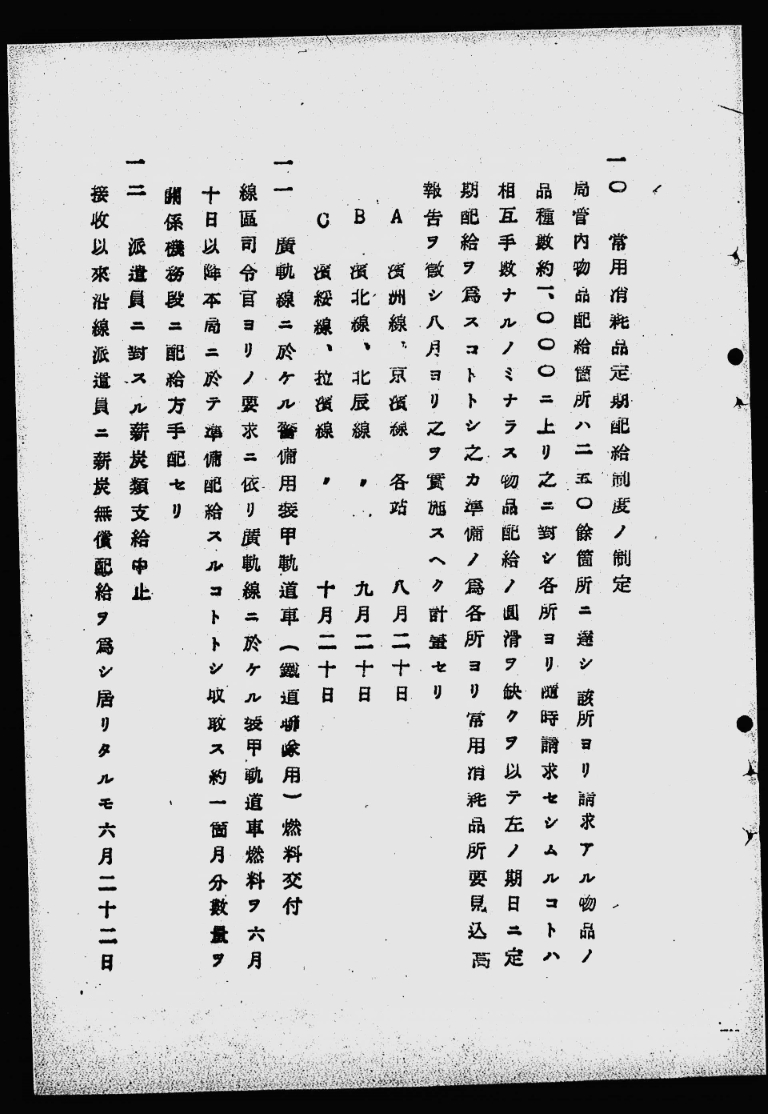 一〇　常用消耗品定期配給制度ノ制定
局管内物品配給箇所ハ二五〇餘箇所ニ達シ該所ヨリ請求アル物品ノ
品種數約一、〇〇〇ニ上リ之ニ對シ各所ヨリ隨時請求セシムルコトハ
相互手數ナルノミナラス物品配給ノ圓滑ヲ缺クヲ以テ左ノ期日ニ定
期配給ヲ爲スコトトシ之カ準備ノ爲各所ヨリ常用消耗品所要見込高
報告ヲ徴シ八月ヨリ之ヲ實施スヘク計畫セリ
A　濱洲線、京濱線　各站　八月二十日
B　濱北線、北辰線　〃　九月二十日
C　濱綏線、拉濱線　〃　十月二十日
一一　廣軌線ニ於ケル警備用裝甲軌道車（鐵道用）燃料交付
線區司令官ヨリノ要求ニ依リ廣軌線ニ於ケル裝甲軌道車燃料ヲ六月
十日以降本局ニ於テ準備配給スルコトトシ取敢ス約一箇月分數量ヲ
關係機務段ニ配給方手配セリ
一二　派遣員ニ對スル薪炭類支給中止
接收以來沿線派遣員ニ薪炭無償配給ヲ爲シ居リタルモ六月二十二日